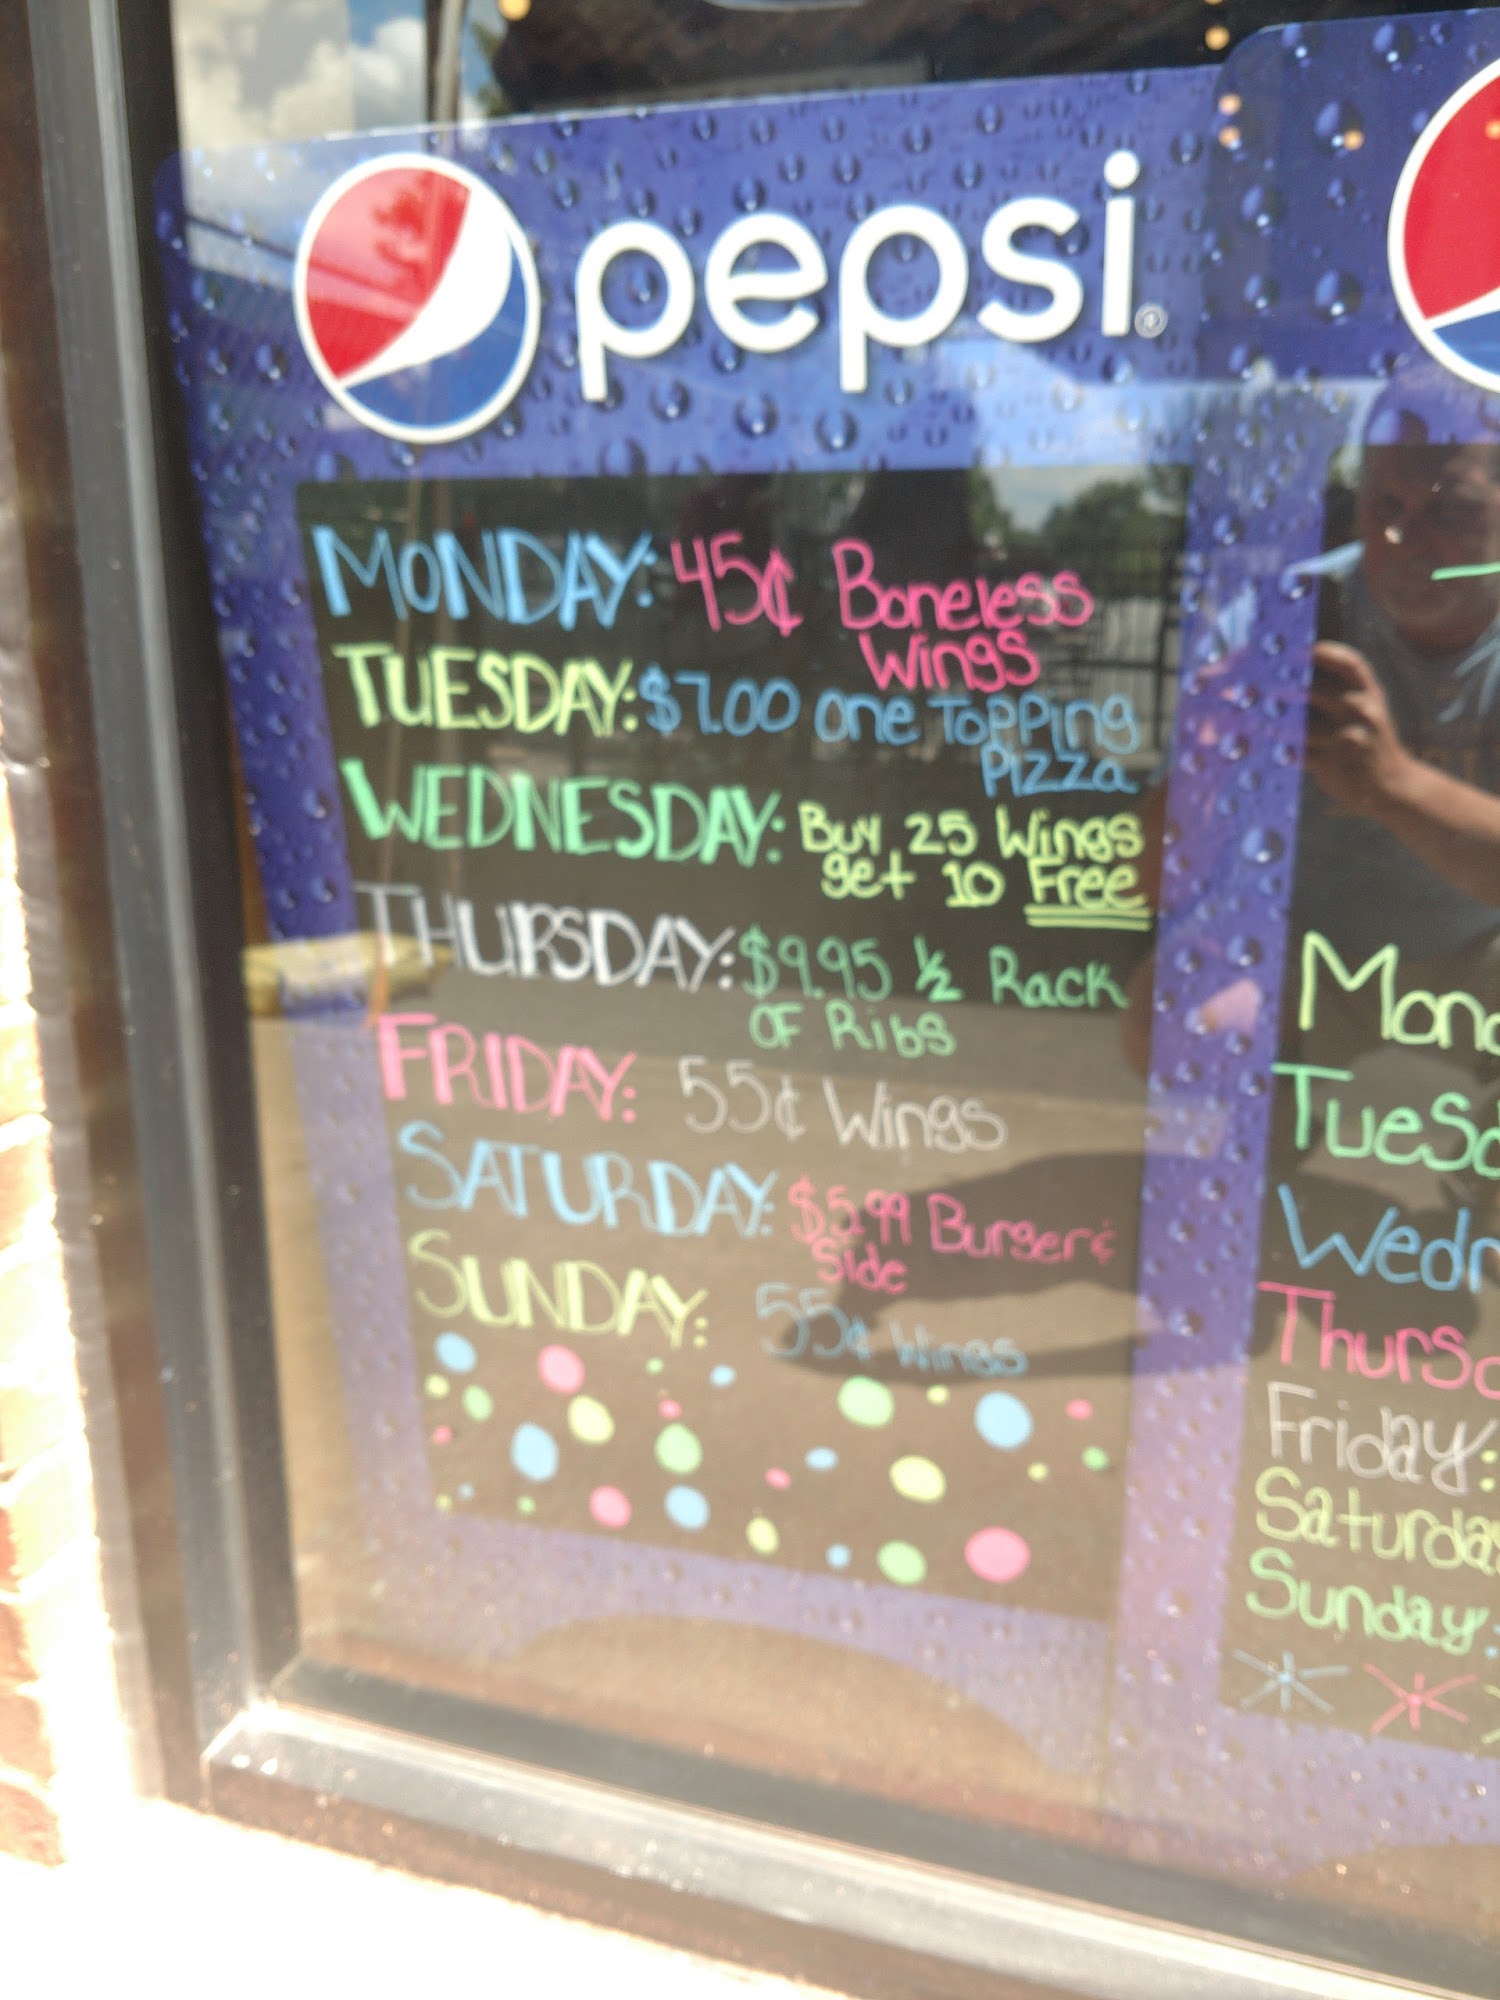 pepsi®
MONDAY: 45¢ Boneless
Wings
TUESDAY: $7.00 One Topping
Pizza
WEDNESDAY: Buy 25 Wings
get 10 Free
THURSDAY: $9.95 ½ Rack
OF Ribs
FRIDAY: 55¢ Wings
SATURDAY: $5.99 Burger &
Side
SUNDAY: 55¢ Wings
Mon
Tues
Wed
Thurs
Friday:
Saturda
Sunday: